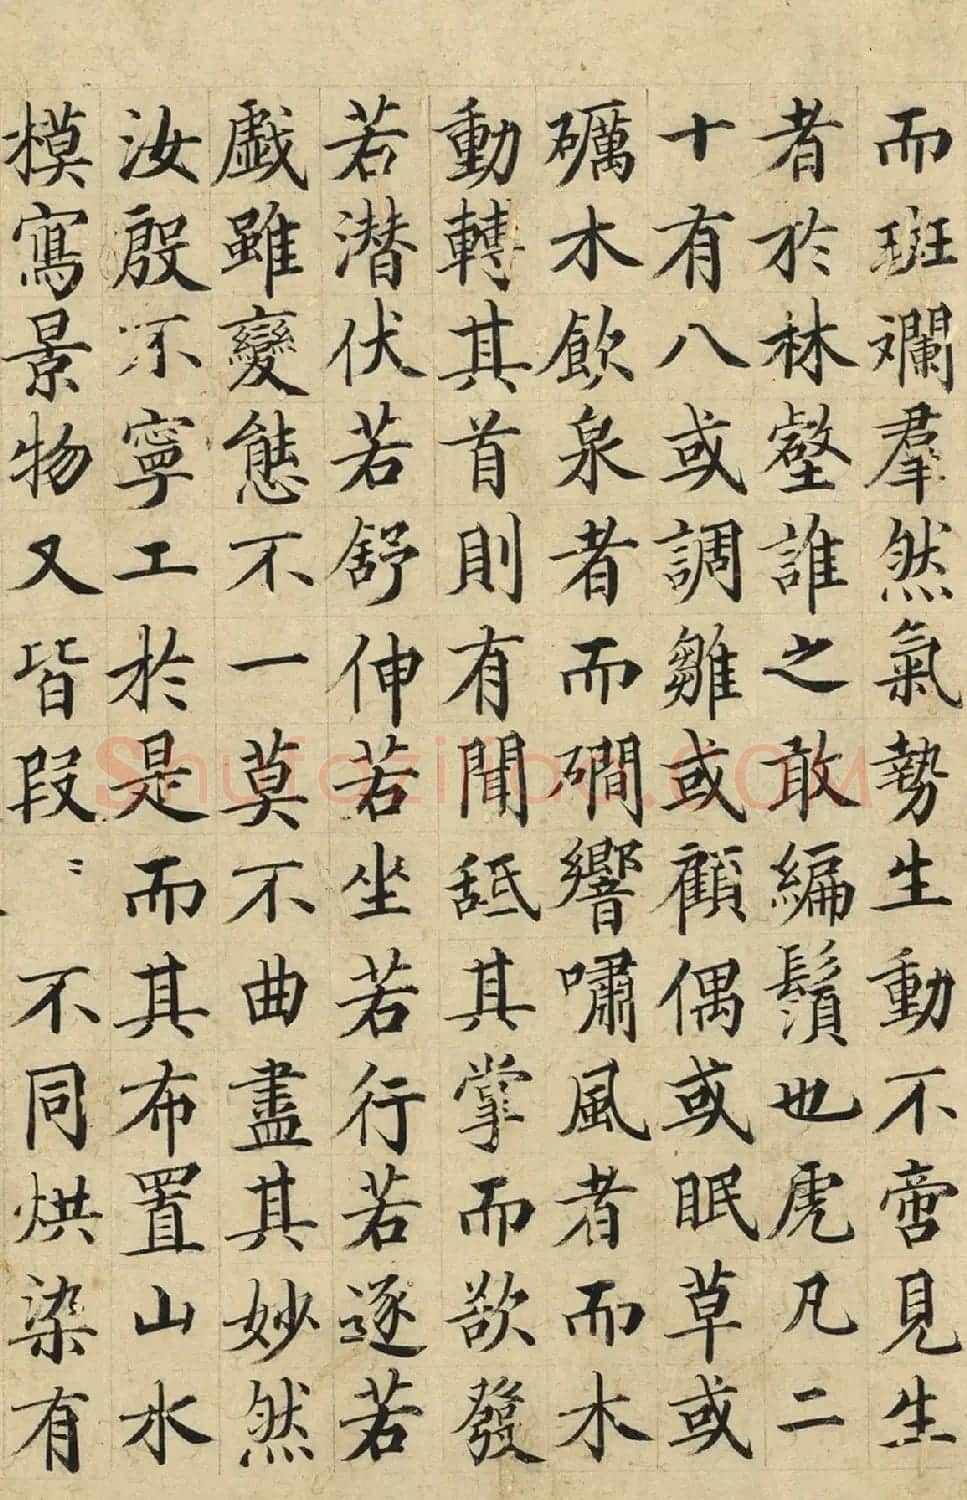 而班斓羣然氣勢生動不啻見生
者於林壑誰之敢編鬚也虎凡二
十有八或調雛或顧偶或眠草或
礪木飲泉者而磵響嘯風者而木
動轉其首則有聞舐其掌而欲發
若潜伏若舒伸若坐若行若逐若
戯雖變態不一莫不曲盡其妙然
汝殷不寧工於是而其布置山水
模寫景物又皆叚〻不同烘染有
Shufaziliao.COM